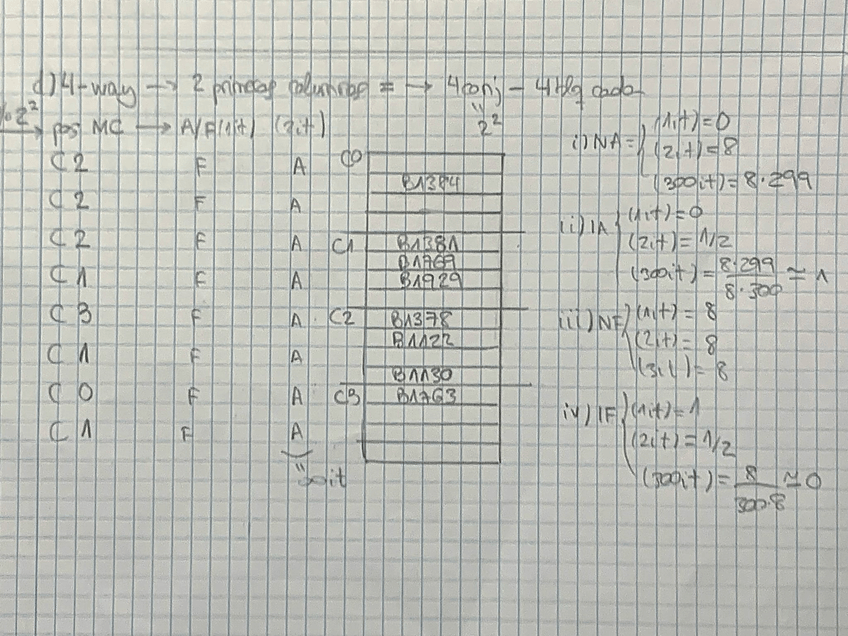 d) 4-way → 2 primeras columnas = → 4conj - 4blq cada
2²
%2² → pos MC → A/F(1it) (2it)
C2 F A
C2 F A
C2 F A
C1 F A
C3 F A
C1 F A
C0 F A
C1 F A
300it
C0
B1384
C1 B1381
B1769
B1929
C2 B1378
B1122
B1130
C3 B1763
i) NA = (1it) = 0
(2it) = 8
(300it) = 8·299
ii) IA (1it) = 0
(2it) = 1/2
(300it) = 8·299 / 8·300 ≃ 1
iii) NF (1it) = 8
(2it) = 8
(3it) = 8
iv) IF (1it) = 1
(2it) = 1/2
(300it) = 8 / 300·8 ≃ 0